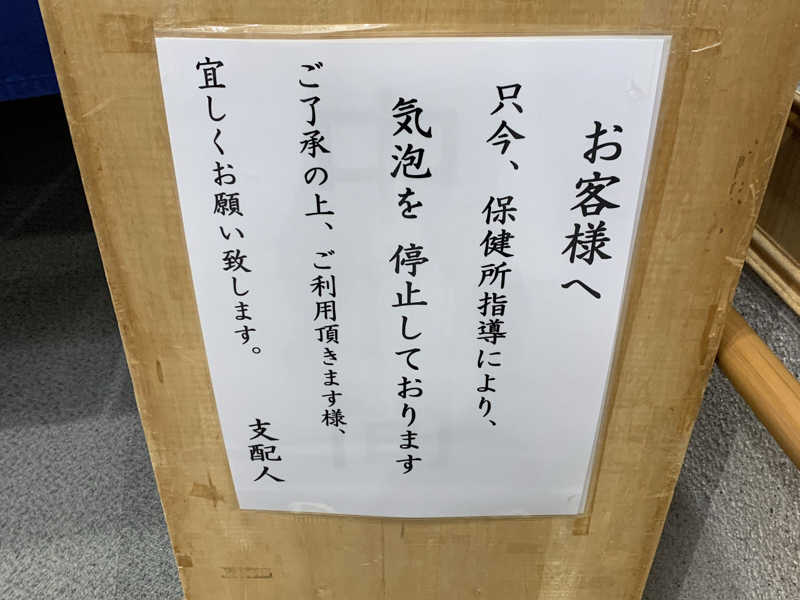 お客様へ
只今、保健所指導により、
気泡を 停止しております
ご了承の上、ご利用頂きます様、
宜しくお願い致します。
支配人